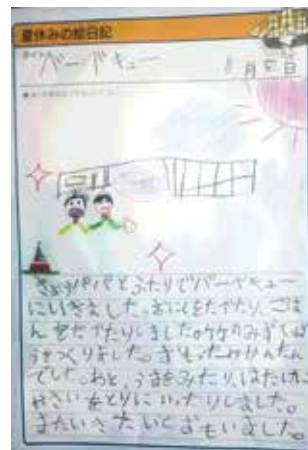 夏休みの絵日記
バーベキュー
8月5日
きょうパパとふたりでバーベキュー
にいきました。おにくをたべたり、ごは
んをたべたりしました。竹のみずて
うをつくりました。かんたん
でした。あと、うまをみたり、はたけに
やさいをとりにいったりしました。
またいきたいとおもいました。